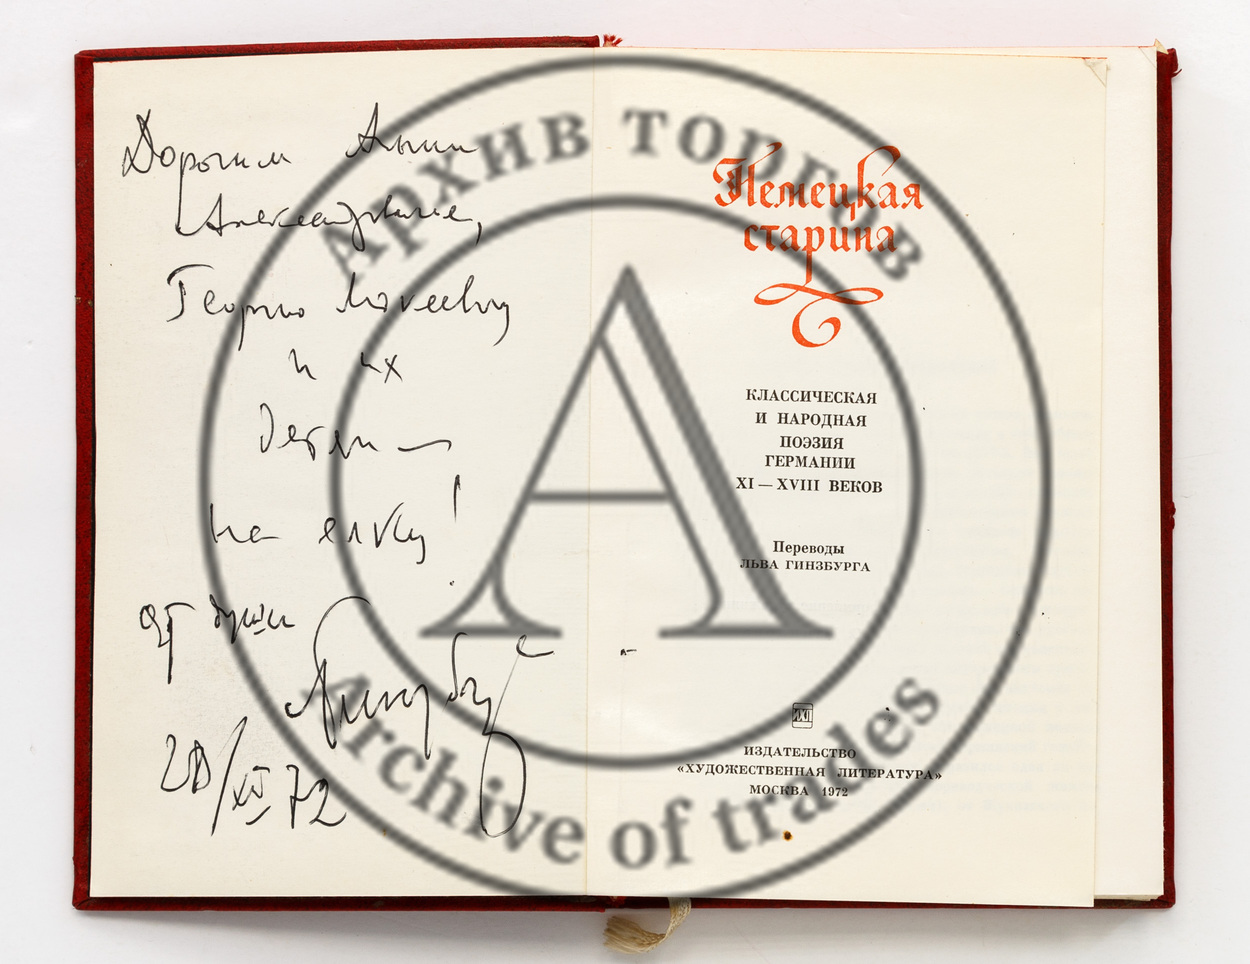 Дорогим Анне
Александровне,
Георгию
и их
детям —
на ёлку!
от души
Гинзбург
28/XII 72
Немецкая
старина
КЛАССИЧЕСКАЯ
И НАРОДНАЯ
ПОЭЗИЯ
ГЕРМАНИИ
XI — XVIII ВЕКОВ
Переводы
ЛЬВА ГИНЗБУРГА
ИЗДАТЕЛЬСТВО
«ХУДОЖЕСТВЕННАЯ ЛИТЕРАТУРА»
МОСКВА 1972
Архив торгов
А
Archive of trades